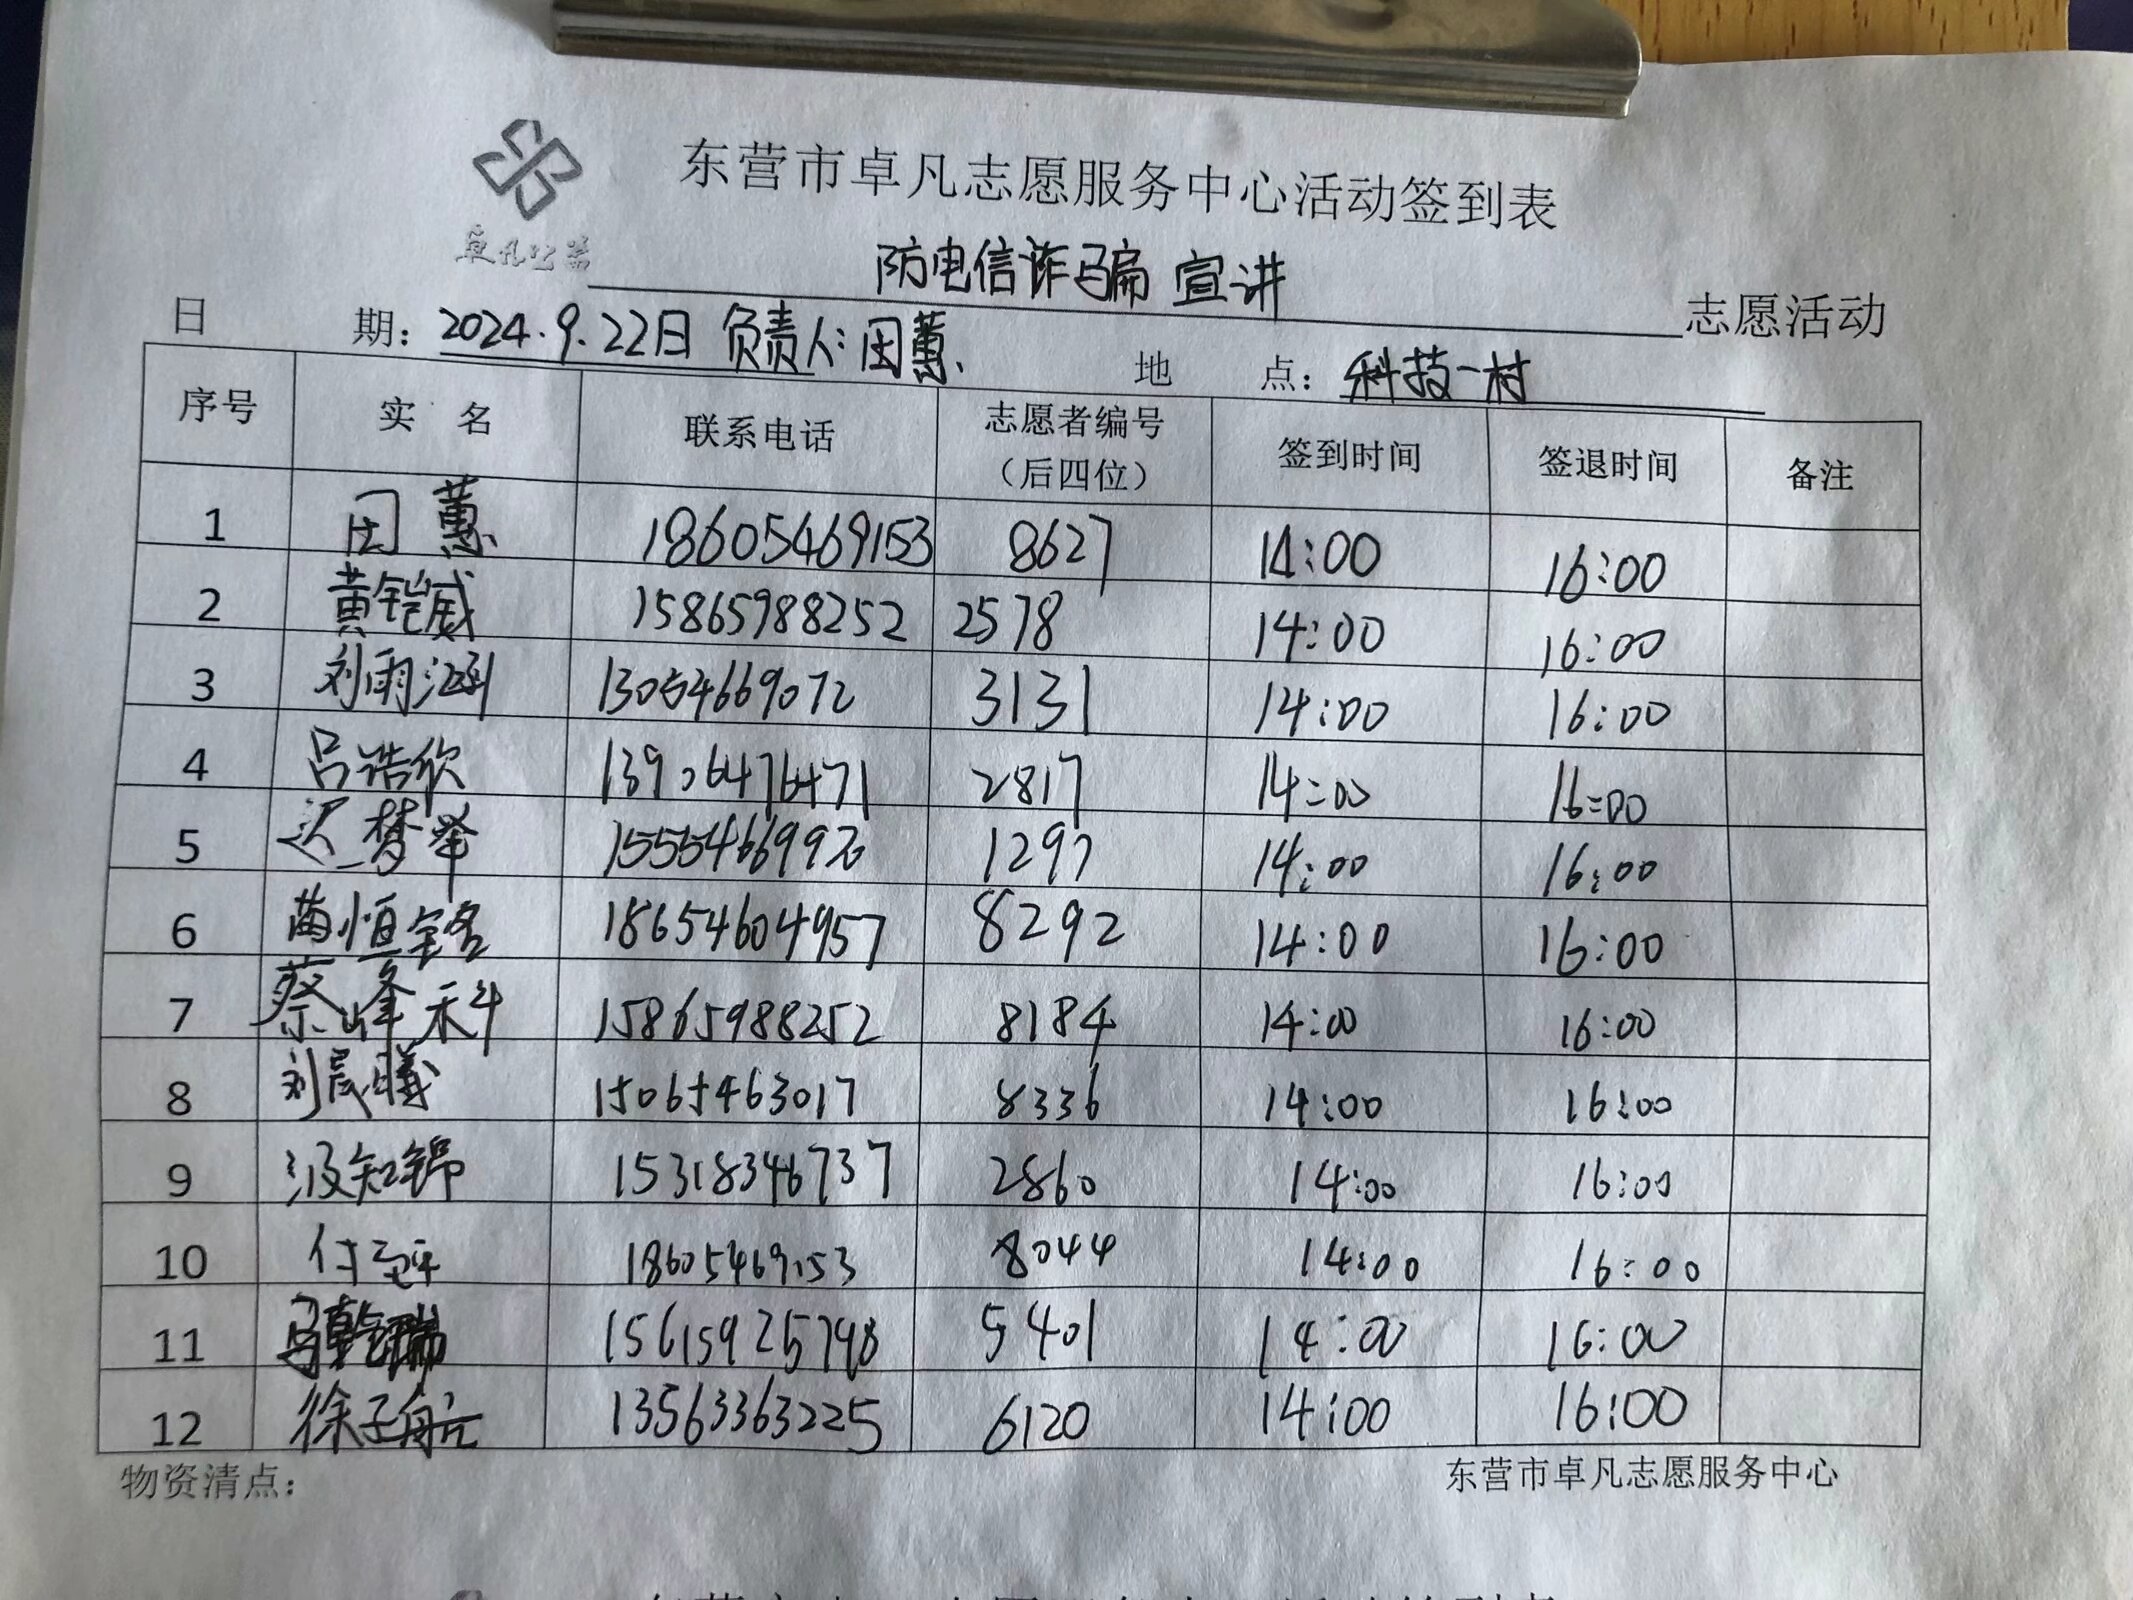 东营市卓凡志愿服务中心活动签到表
卓凡公益
防电信诈骗 宣讲 志愿活动
日 期: 2024.9.22日 负责人: 田蕙 地 点: 科技一村
序号 实 名 联系电话 志愿者编号(后四位) 签到时间 签退时间 备注
1 田蕙 18605469153 8627 14:00 16:00
2 黄铠威 15865988252 2578 14:00 16:00
3 刘雨涵 13054669072 3131 14:00 16:00
4 吕浩欣 13906476471 2817 14:00 16:00
5 迟梦 1297 14:00 16:00
6 苗恒铭 18654604957 8292 14:00 16:00
7 蔡峰科 15865988252 8184 14:00 16:00
8 刘晨曦 15065463017 8336 14:00 16:00
9 汲知锦 15318346737 2860 14:00 16:00
10 付 18605469153 8044 14:00 16:00
11 马乾瑞 15615925798 5401 14:00 16:00
12 徐子航 13563363225 6120 14:00 16:00
物资清点: 东营市卓凡志愿服务中心